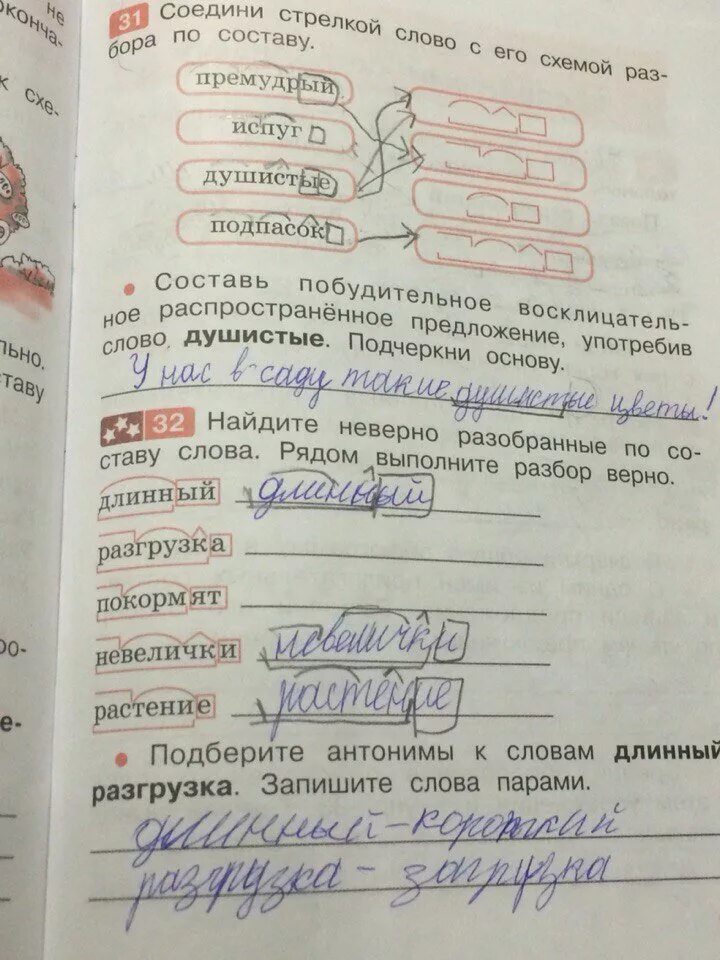 не
оконча-
к схе-
31 Соедини стрелкой слово с его схемой раз-
бора по составу.
премудрый
испуг
душистые
подпасок
• Составь побудительное восклицатель-
ное распространённое предложение, употребив
слово душистые. Подчеркни основу.
У нас в саду такие душистые цветы!
ставу
32 Найдите неверно разобранные по со-
ставу слова. Рядом выполните разбор верно.
длинный длинный
разгрузка
покормят
невелички невелички
растение растение
• Подберите антонимы к словам длинный
разгрузка. Запишите слова парами.
длинный - короткий
разгрузка - загрузка